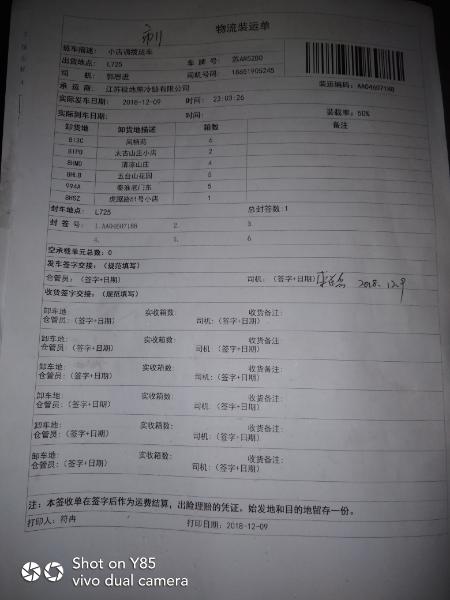 物流装运单
班车描述: 小古调拨运车
出货地点: L725 车 牌 号: 苏AR5280
司 机: 司机号码: 18651905245
承 运 商: 江苏极地熊冷链有限公司 装运编码: AA04607188
实际发车日期: 2018-12-09 时间: 23:03:26
实际到车日期: 时间: 装载率: 50%
卸货地 卸货地描述 箱数 备注
813C 凤栖苑 6
81P0 太古山庄小店 2
8HM0 清凉山庄 4
8HL0 五台山花园 6
994A 秦淮老门东 5
8HSZ 虎踞路81号小店 1
封车地点: L725 总封签数:1
封 签 号: 1.AA04607188 2. 3.
4. 5. 6.
空承载单元总数: 0
发车签字交接: (规范填写)
仓管员: (签字+日期) 司机: (签字+日期) 2018.12.9
收货签字交接: (规范填写)
卸车地: 实收箱数: 收货备注:
仓管员: (签字+日期) 司机: (签字+日期)
卸车地: 实收箱数: 收货备注:
仓管员: (签字+日期) 司机: (签字+日期)
卸车地: 实收箱数: 收货备注:
仓管员: (签字+日期) 司机: (签字+日期)
卸车地: 实收箱数: 收货备注:
仓管员: (签字+日期) 司机: (签字+日期)
卸车地: 实收箱数: 收货备注:
仓管员: (签字+日期) 司机: (签字+日期)
卸车地: 实收箱数: 收货备注:
仓管员: (签字+日期) 司机: (签字+日期)
注: 本签收单在签字后作为运费结算, 出险理赔的凭证。始发地和目的地留存一份。
打印人: 符冉 打印日期: 2018-12-09
Shot on Y85
vivo dual camera